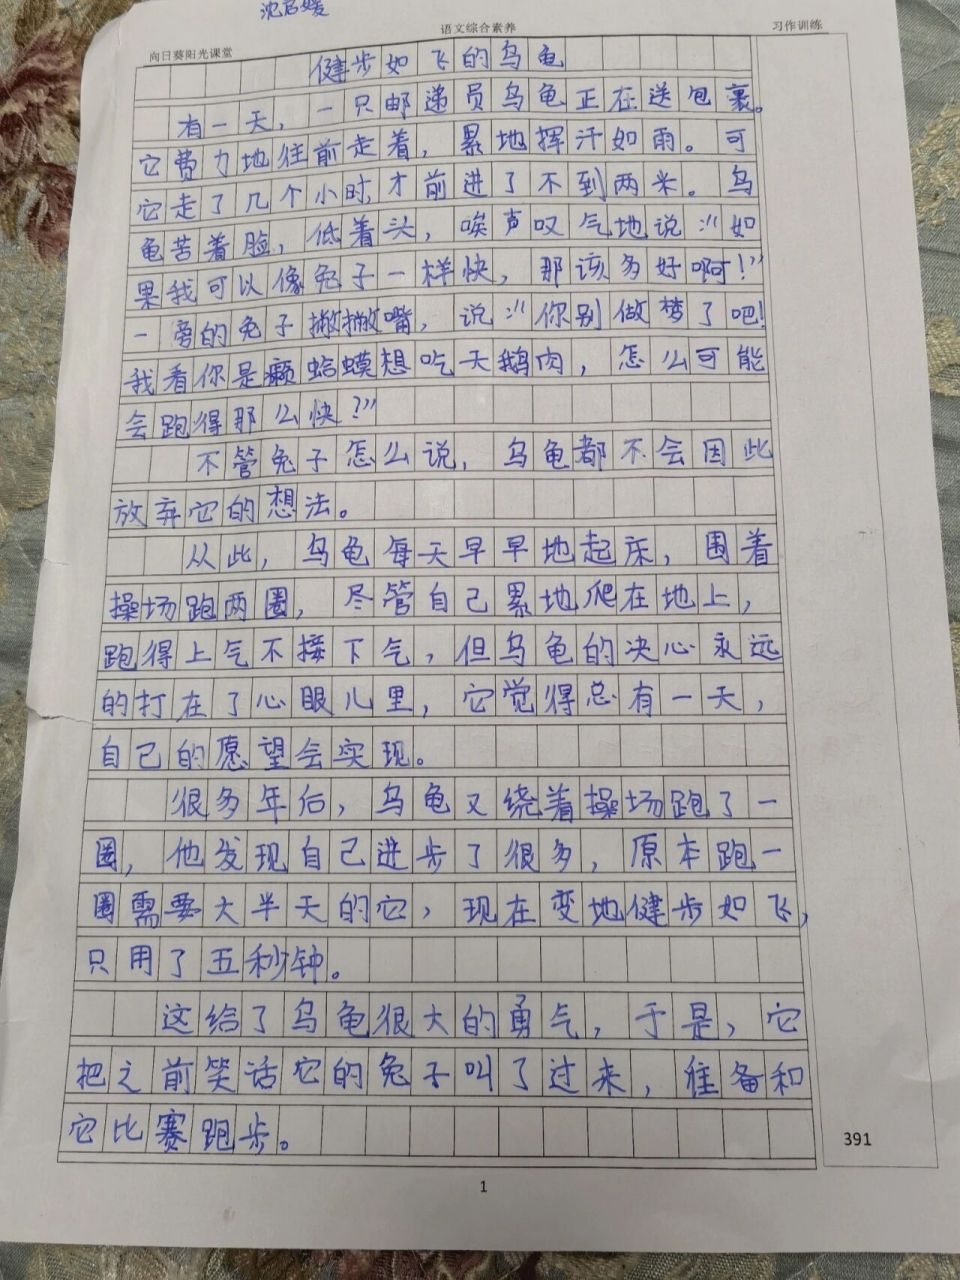 沈启媛
向日葵阳光课堂 语文综合素养 习作训练
健步如飞的乌龟
有一天，一只邮递员乌龟正在送包裹。
它费力地往前走着，累地挥汗如雨。可
它走了几个小时，才前进了不到两米。乌
龟苦着脸，低着头，唉声叹气地说：“如
果我可以像兔子一样快，那该多好啊！”
一旁的兔子撇撇嘴，说：“你别做梦了吧！
我看你是癞蛤蟆想吃天鹅肉，怎么可能
会跑得那么快？”
不管兔子怎么说，乌龟都不会因此
放弃它的想法。
从此，乌龟每天早早地起床，围着
操场跑两圈，尽管自己累地爬在地上，
跑得上气不接下气，但乌龟的决心永远
的打在了心眼儿里，它觉得总有一天，
自己的愿望会实现。
很多年后，乌龟又绕着操场跑了一
圈，他发现自己进步了很多，原本跑一
圈需要大半天的它，现在变地健步如飞，
只用了五秒钟。
这给了乌龟很大的勇气，于是，它
把之前笑话它的兔子叫了过来，准备和
它比赛跑步。
391
1